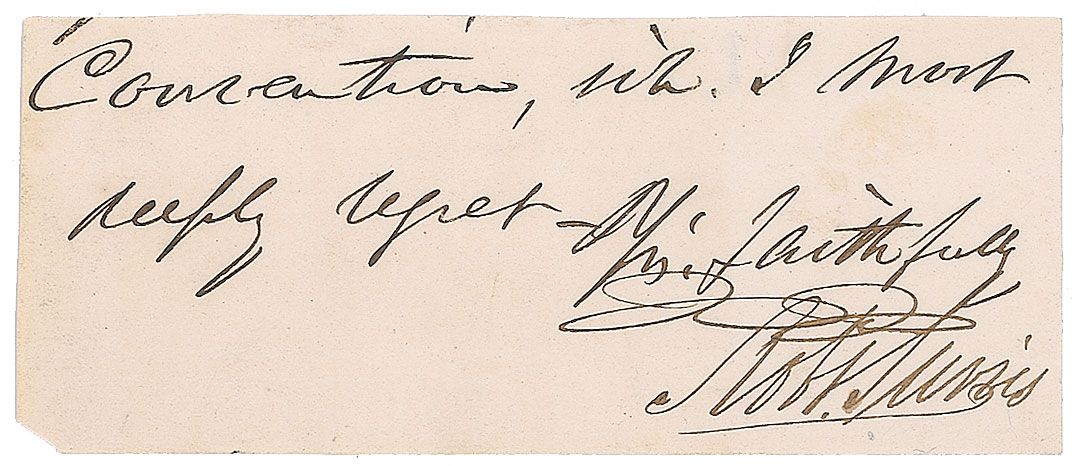 Convention, wh. I most
deeply regret –
Yrs. faithfully
Robt. Purvis